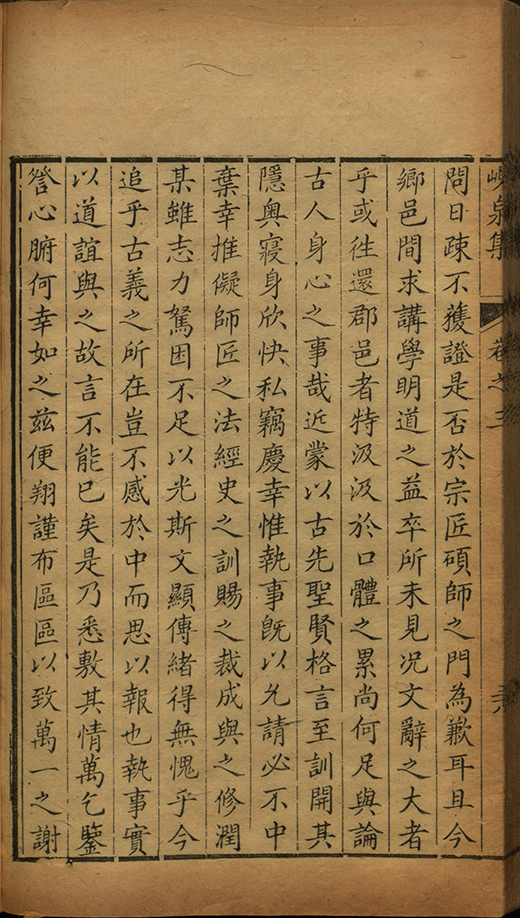 峴泉集
卷之三
問日疎不獲證是否於宗匠碩師之門為歉耳且今
鄉邑間求講學明道之益卒所未見况文辭之大者
乎或徃還郡邑者特汲汲於口體之累尚何足與論
古人身心之事哉近蒙以古先聖賢格言至訓開其
隱奥寝身欣快私竊慶幸惟執事旣以允請必不中
棄幸推儗師匠之法經史之訓賜之裁成與之修潤
某雖志力駑困不足以光斯文顯傳緒得無愧乎今
追乎古義之所在豈不感於中而思以報也執事實
以道誼與之故言不能已矣是乃悉敷其情萬乞鑒
詧心腑何幸如之兹便翔謹布區區以致萬一之謝